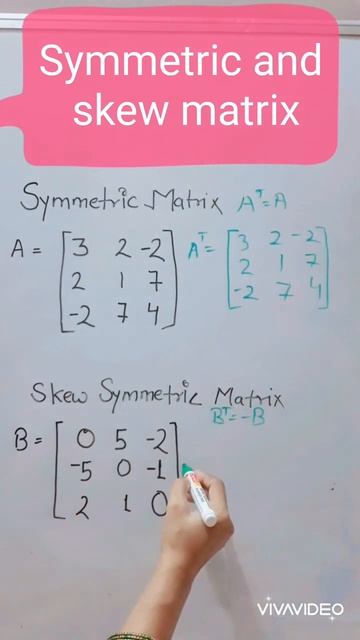 Symmetric and
skew matrix
Symmetric Matrix Aᵀ=A
A = [3 2 -2 Aᵀ= [3 2 -2
2 1 7 2 1 7
-2 7 4] -2 7 4]
Skew Symmetric Matrix
Bᵀ=-B
B = [0 5 -2
-5 0 -1
2 1 0
VIVAVIDEO